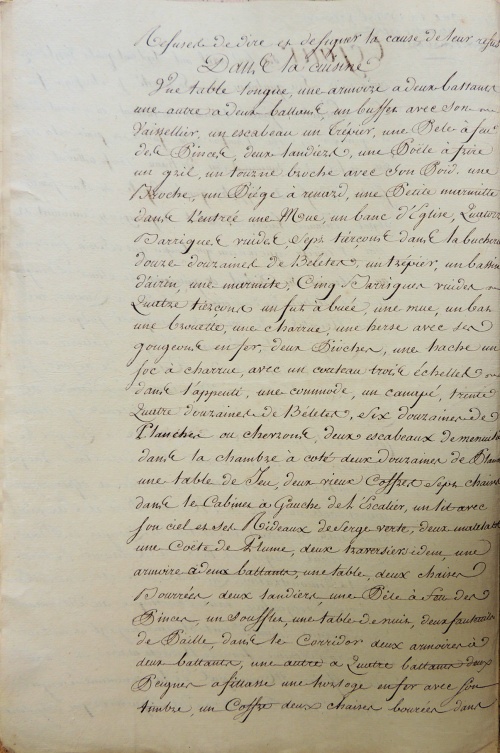 Refusés de dire et désigner la cause de leur refus
Dans la cuisine
Une table longue, une armoire a deux battants
une autre a deux battans, un buffet avec son
Vaissellier, un escabeau un trépier, une Pèle à feu
des Pinces, deux landiers, une Poële a frire
un gril, un tourne broche avec son Poid. une
Broche, un Piége à renard, une Petite marmitte
dans L'entrée une Mue, un banc d'Eglise, Quatorze
Barriques vuides Sept tierçons dans la bucher
douze douzaines de Béletes, un trépier, un bassin
d'airin, une marmite, Cinq Barriques vuides
Quatre tierçons un fut à buée, une mue, un bas
une brouette, une charrue, une herse avec ses
gougeons en fer, deux Pioches, une hache un
soc à charrue, avec un couteau trois échelles
dans l'appenti, une commode, un canapé, trente
Quatre douzaines de Béletes, Six douzaines de
Planches ou chevrons, deux escabeaux de menuisier
dans la chambre à coté deux douzaines de
une table de Jeu, deux vieux Coffres Sept chaises
dans le Cabinet a Gauche de L'Escalier, un lit avec
son ciel et ses Rideaux de Serge verte, deux matelats
une Coëte de Plume, deux traversiers idem, une
armoire a deux battants, une table, deux chaises
Bourrées, deux landiers une Pèle à Feu des
Pinces, un Soufflet, une table de nuit, deux fauteuils
de Paille, dans le Corridor deux armoires à
deux battants, une autre a Quatre battants deux
Peignes a filasse une horloge en fer avec son
timbre, un Coffre deux chaises bourées dans